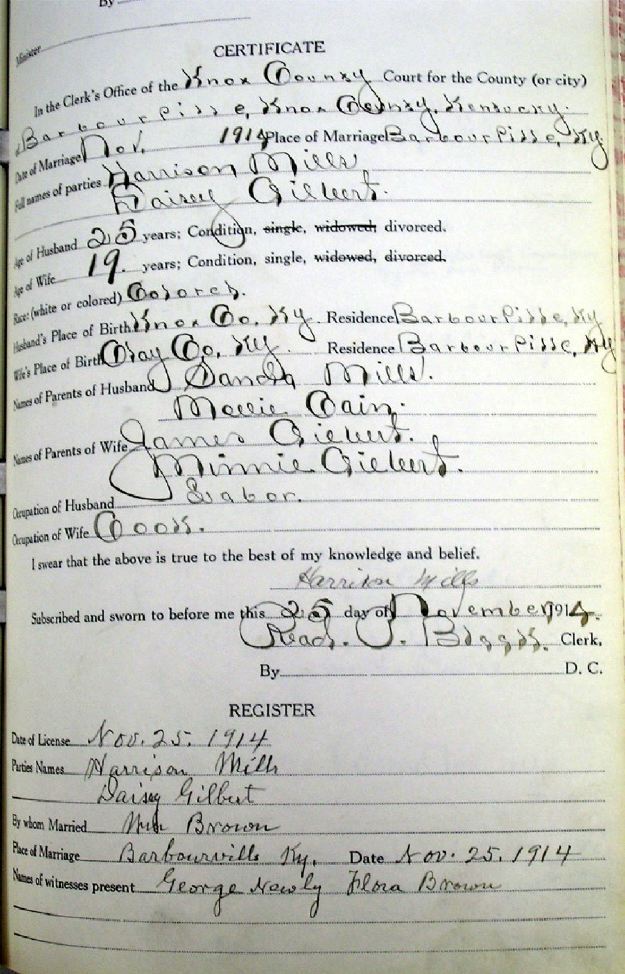 By
Minister
CERTIFICATE
In the Clerk's Office of the Knox County Court for the County (or city)
of Barbourville, Knox County, Kentucky.
Date of Marriage Nov. 1914 Place of Marriage Barbourville, Ky
Full names of parties Harrison Mills
Daisey Gilbert.
Age of Husband 25 years; Condition, single, widowed, divorced.
Age of Wife 19. years; Condition, single, widowed, divorced.
Race: (white or colored) Colored.
Husband's Place of Birth Knox Co, Ky. Residence Barbourville, Ky
Wife's Place of Birth Clay Co, Ky. Residence Barbourville, Ky
Names of Parents of Husband Mills.
Cain.
Names of Parents of Wife James Gilbert.
Minnie Gilbert.
Occupation of Husband Labor.
Occupation of Wife Cook.
I swear that the above is true to the best of my knowledge and belief.
Harrison Mills
Subscribed and sworn to before me this 25 day of November, 1914.
Read P. Black. Clerk.
By D. C.
REGISTER
Date of License Nov. 25. 1914
Parties Names Harrison Mills
Daisey Gilbert
By whom Married Wm Brown
Place of Marriage Barbourville Ky. Date Nov. 25. 1914
Names of witnesses present George Newly Flora Brown